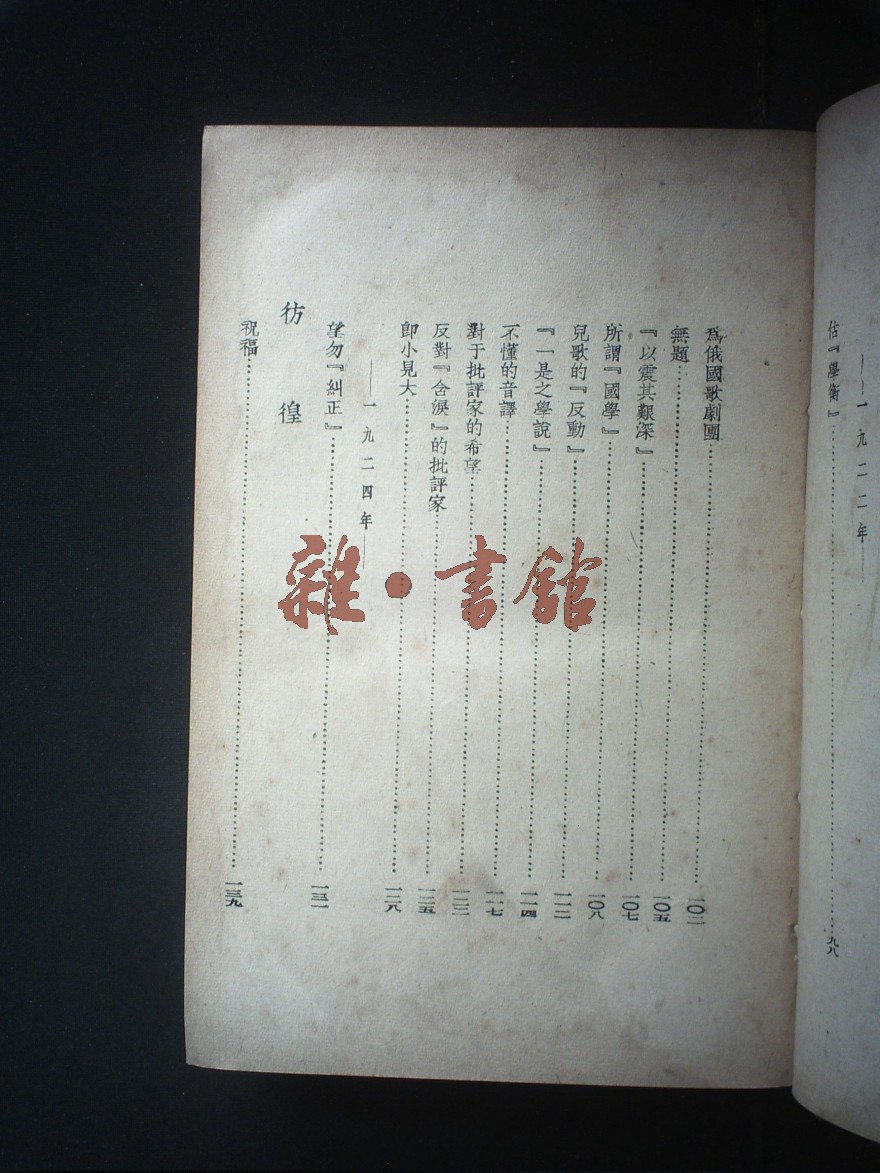 ——一九二二年——
估『學衡』……九八
爲俄國歌劇團……一〇二
無題……一〇五
『以震其艱深』……一〇七
所謂『國學』……一〇八
兒歌的『反動』……一一二
『一是之學說』……一一四
不懂的音譯……一一七
對于批評家的希望……一二二
反對『含淚』的批評家……一二五
即小見大……一二八
——一九二四年——
望勿『糾正』……一三一
彷徨
祝福……一三九
雜·書館